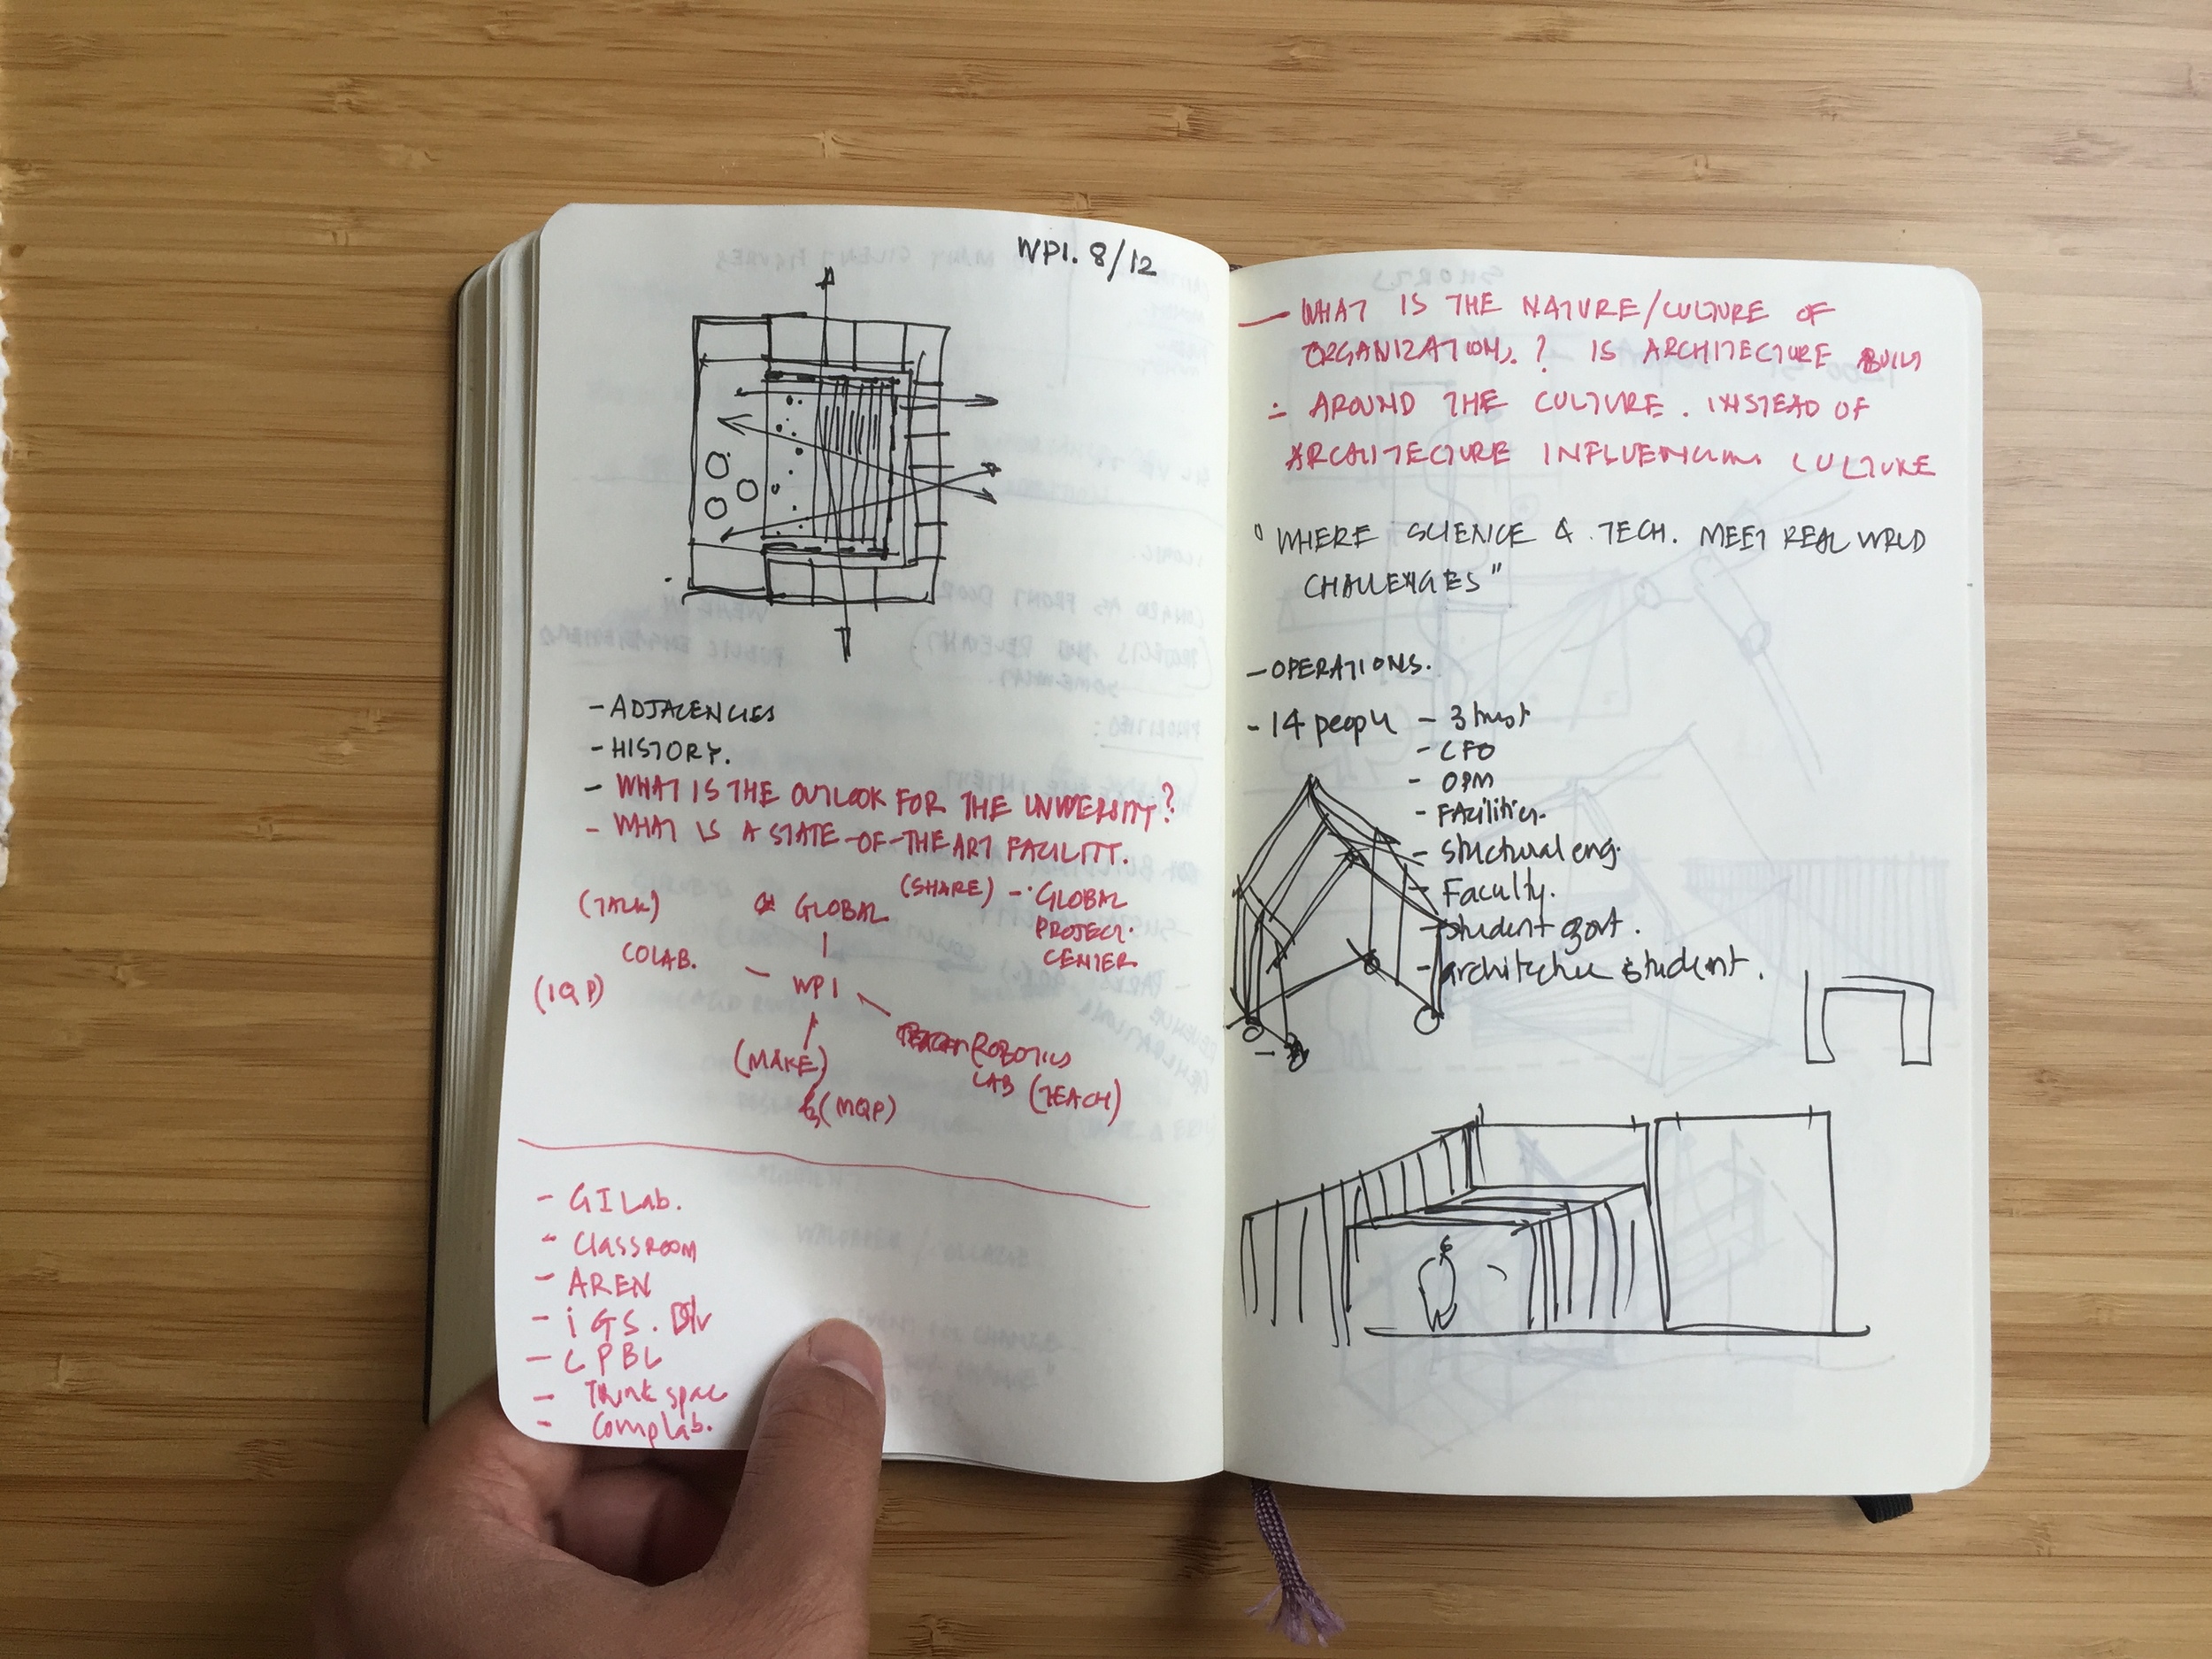 WPI. 8/12
- ADJACENCIES
- HISTORY.
- WHAT IS THE OUTLOOK FOR THE UNIVERSITY?
- WHAT IS A STATE-OF-THE ART FACILITY.
(TALK)
GLOBAL
(SHARE) - GLOBAL
PROJECT.
CENTER
COLAB. - WPI
(IQP)
ROBOTICS
LAB (TEACH)
(MAKE)
(MQP)
- GI Lab.
- Classroom
- AREN
- iGS. Div
- CPBL
- Think spac
- Comp lab.
- WHAT IS THE NATURE/CULTURE OF
ORGANIZATION. ? IS ARCHITECTURE BUILT
AROUND THE CULTURE. INSTEAD OF
ARCHITECTURE INFLUENCING CULTURE
"WHERE SCIENCE & TECH. MEET REAL WRLD
CHALLENGES"
- OPERATIONS.
- 14 people - 3 trust
- CFO
- OPM
- FAcilities.
- structural eng.
- Faculty.
- student govt.
- architecture student.